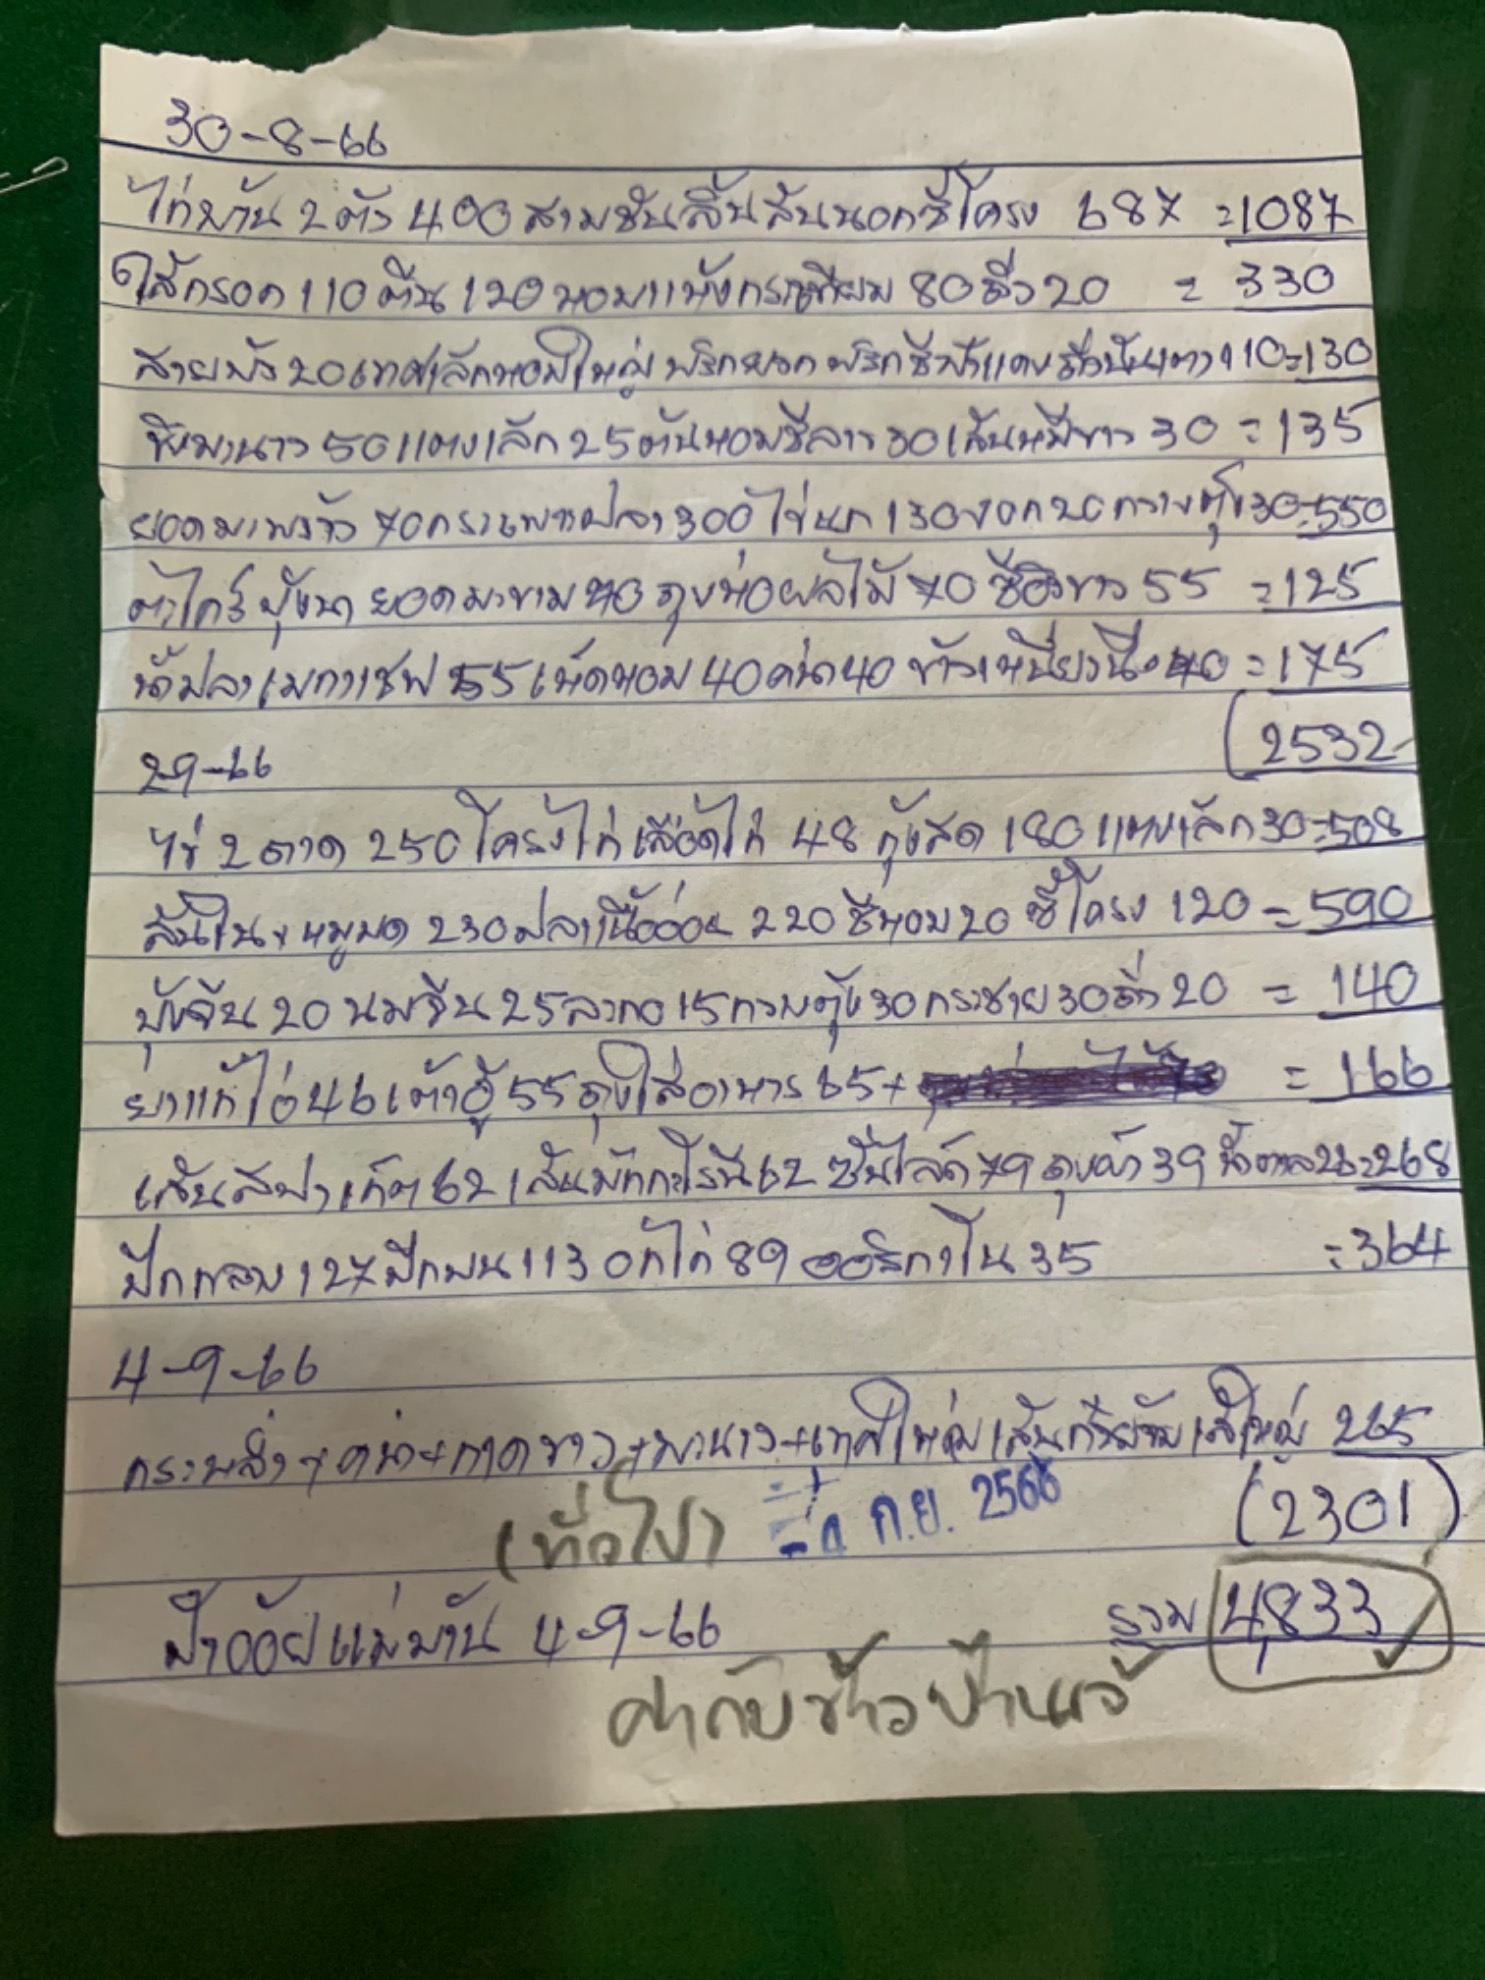 30-8-66
ไก่บ้าน 2 ตัว 400 สามชั้นลิ้นสันนอกซี่โครง 687 = 1087
ไส้กรอก 110 ตีน 120 หอมแห้งกระเทียม 80 ถั่ว 20 = 330
สายบัว 20 เทศเล็กหอมใหญ่ พริกหยวก พริกชี้ฟ้าแดง 110 = 130
มะนาว 50 แตงเล็ก 25 ต้นหอมชีลาว 30 เส้นหมี่ขาว 30 = 135
ยอดมะพร้าว 70 กระเพาะปลา 300 ไข่นก 130 งอก 20 กวางตุ้ง 30 = 550
ตะไคร้ บุ้งนา ยอดมะขาม ถุงห่อผลไม้ 70 ซีอิ๊วขาว 55 = 125
น้ำปลาเมกาเชฟ 55 เห็ดหอม 40 คะน้า 40 ข้าวเหนียวนึ่ง 40 = 175
(2532
2-9-66
ไข่ 2 ถาด 250 โครงไก่ เลือดไก่ 48 กุ้งสด 180 แตงเล็ก 30 = 508
สันใน+หมูบด 230 ปลาเนื้ออ่อน 220 ชีหอม 20 ซี่โครง 120 = 590
บุ้งจีน 20 นมจีน 25 ละกอ 15 กวางตุ้ง 30 กระชาย 30 ถั่ว 20 = 140
ยาแก้ไอ 46 เต้าหู้ 55 ถุงใส่อาหาร 65 + = 166
เส้นสปาเก็ต 62 เส้นมักกะโรนี 62 ซันไลต์ 79 ถุงผ้า 39 น้ำตาล 26 = 268
ปีกกลาง 127 ปีกบน 113 อกไก่ 89 ออริกาโน 35 = 364
4-9-66
กระหล่ำ+คะน้า+กาดขาว+มะนาว+เทศใหญ่ เส้นก๋วยจั๊บเส้นใหญ่ 265
(ทั่วไป) - 4 ก.ย. 2566 (2301)
ป้าอ้อยแม่บ้าน 4-9-66 รวม 4,833
ค่ากับข้าวบ้าน